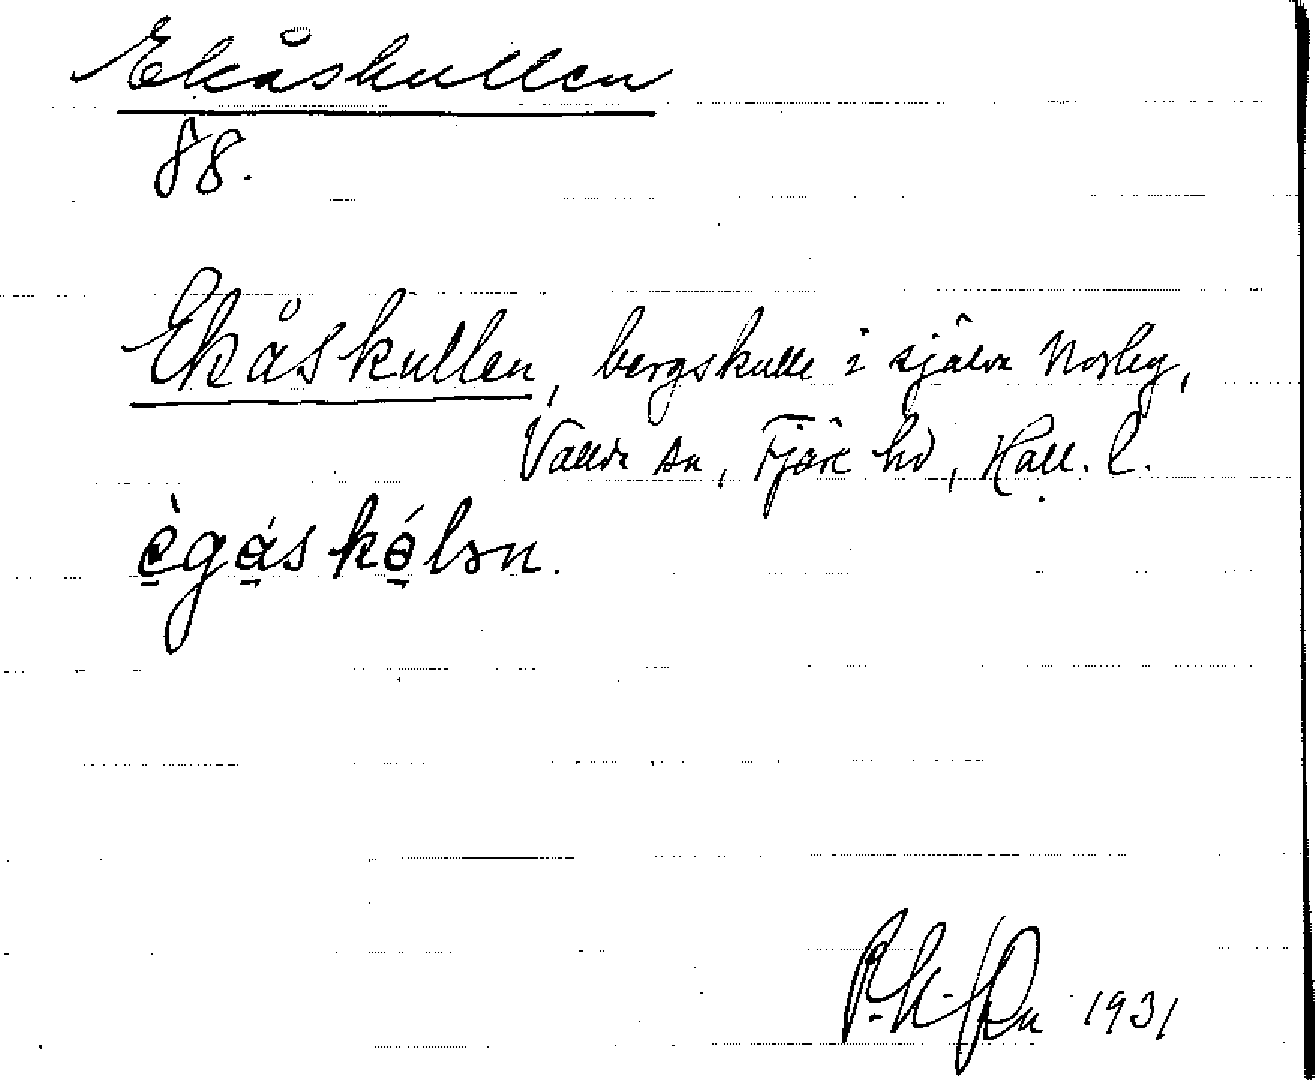 Ekåskullen
88.
Ekåskullen, bergskulle i själva Norby,
Vallda sn, Fjäre hd, Hall. l.
ègáskólən.
1931